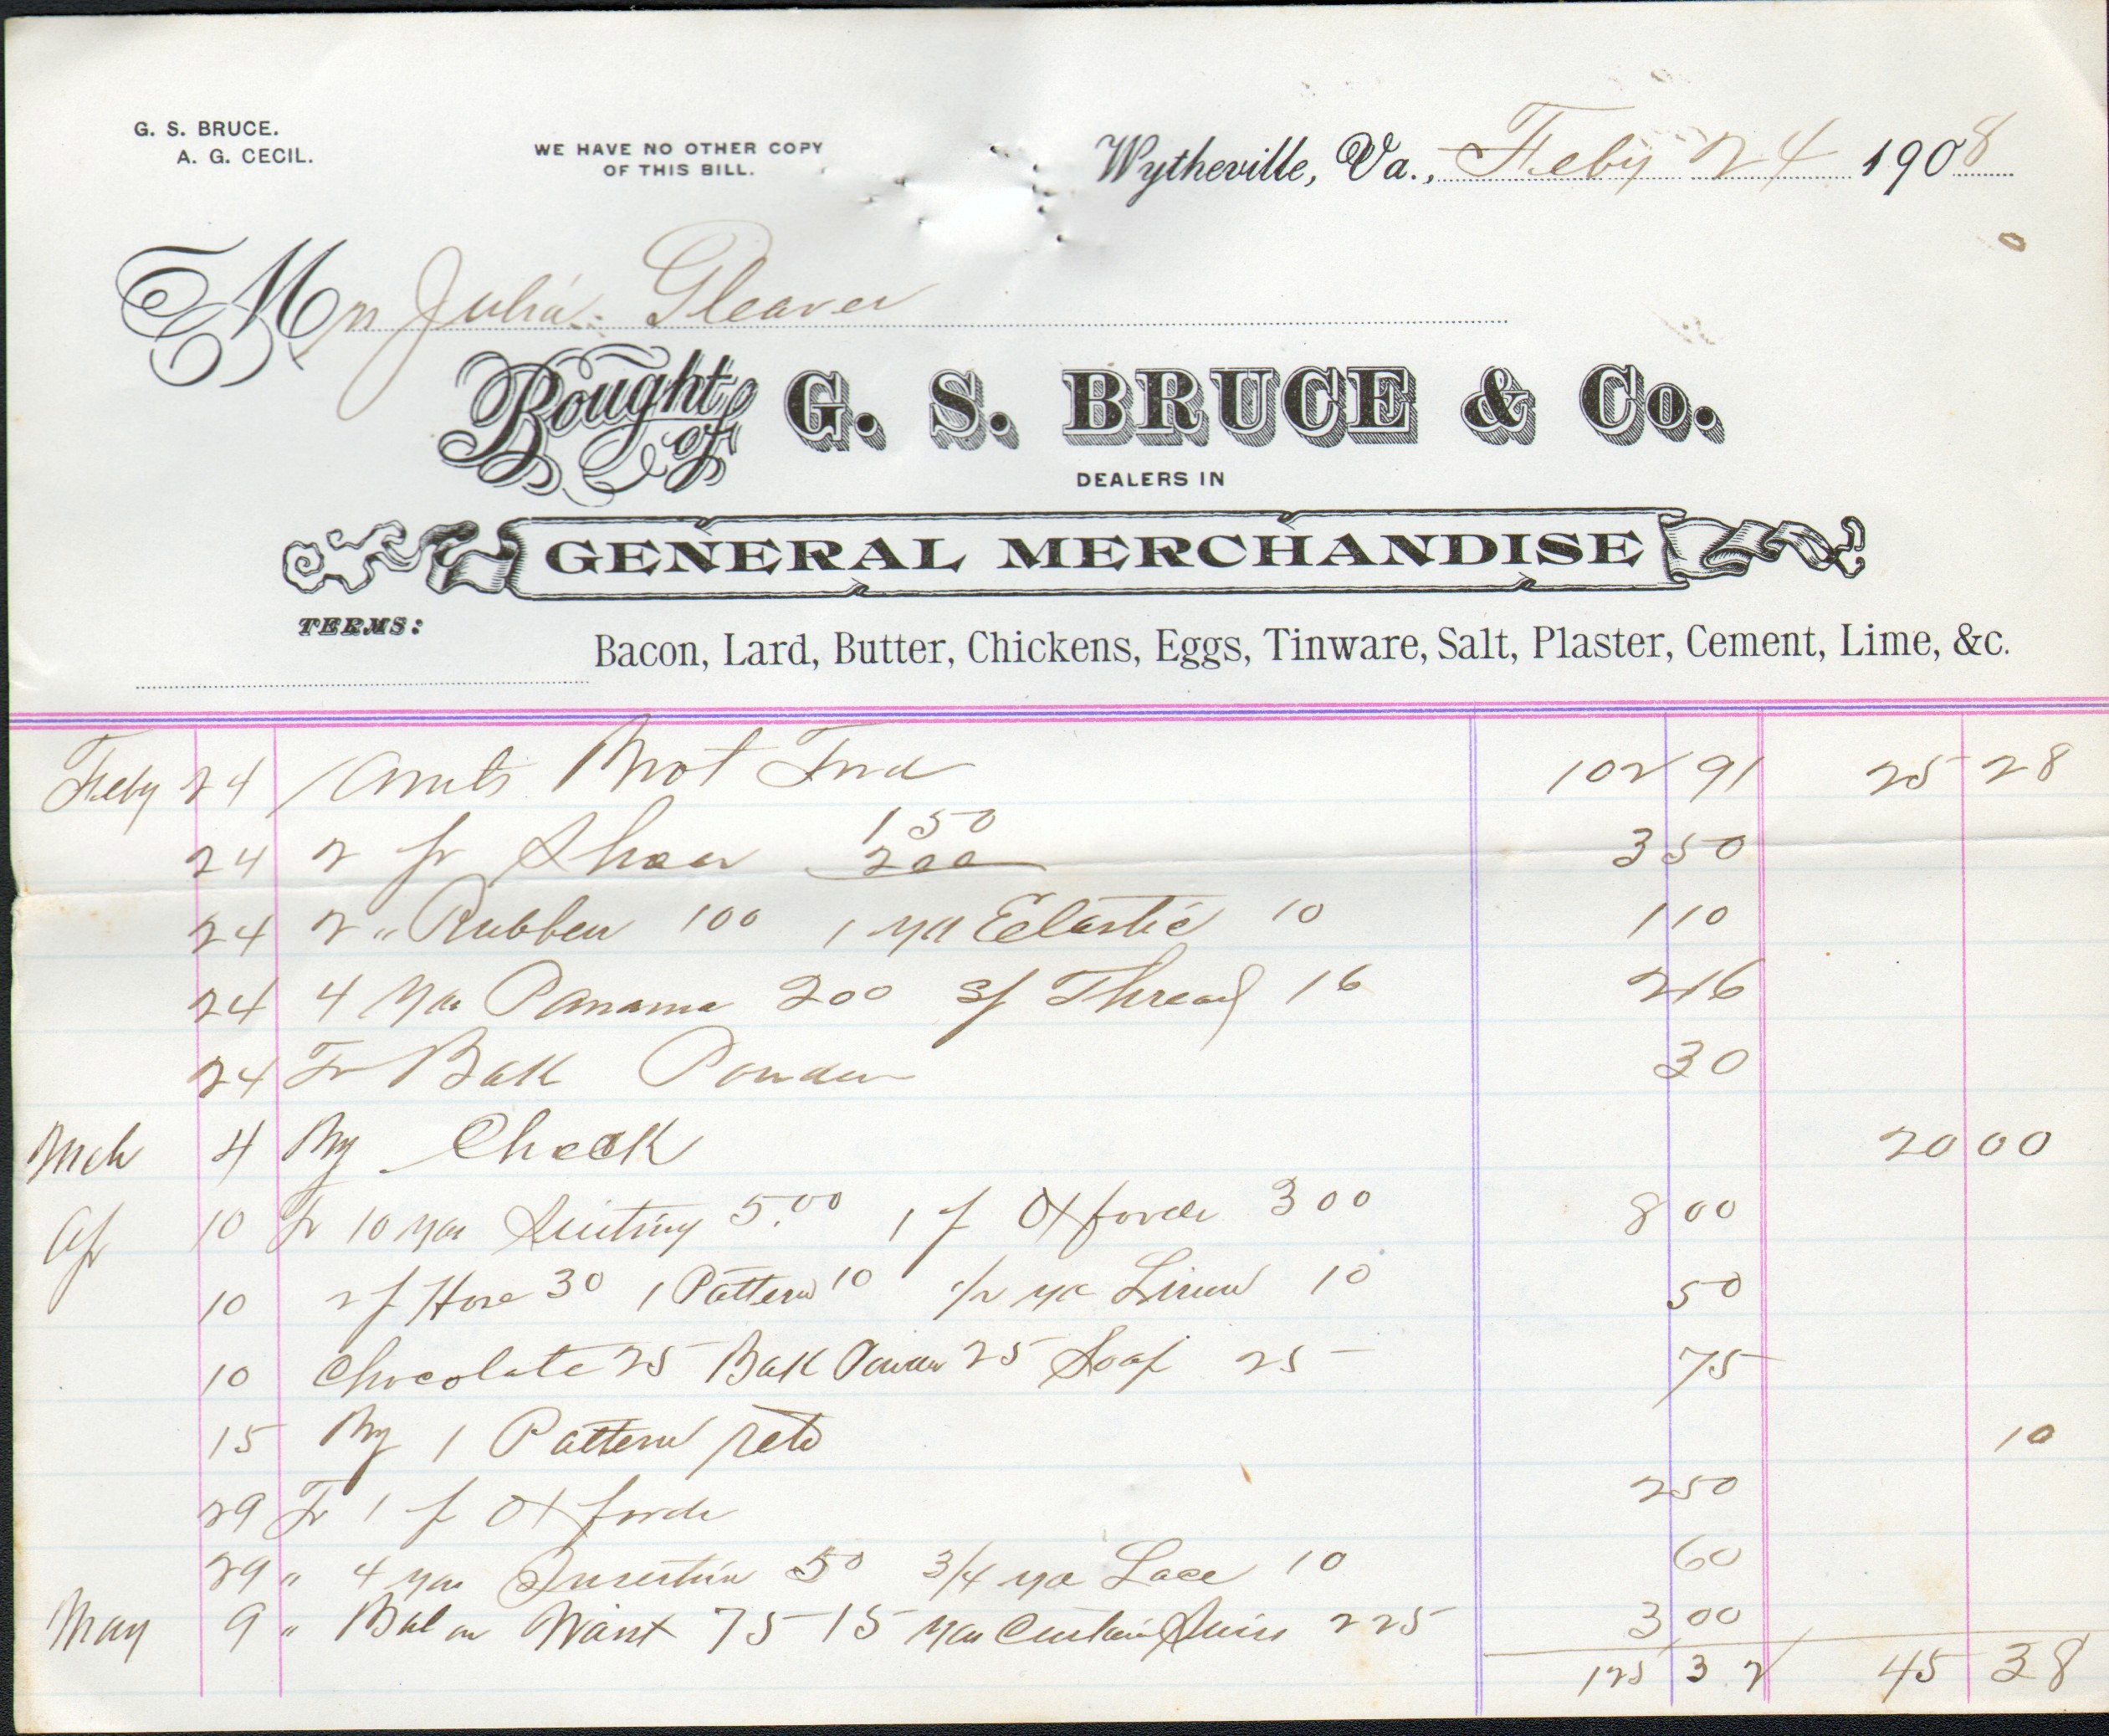 G. S. BRUCE.
A. G. CECIL.
WE HAVE NO OTHER COPY
OF THIS BILL.
Wytheville, Va., Feby 24 1908
Mrs Julia Gleaves
Bought of G. S. BRUCE & Co.
DEALERS IN
GENERAL MERCHANDISE
TERMS:
Bacon, Lard, Butter, Chickens, Eggs, Tinware, Salt, Plaster, Cement, Lime, &c.
Feby 24 Amts Brot Frd 102 91 25 28
24 2 pr Shoes 1 50 2 00 3 50
24 2 " Rubbers 100 1 yd Elastic 10 1 10
24 4 yds Panama 200 Thread 16 2 16
24 To Bak Powder 30
Mch 4 By Check 20 00
Ap 10 To 10 yds Suiting 5.00 1 p Oxfords 3 00 8 00
10 2 p Hose 30 1 Pattern 10 1/2 yd Linen 10 50
10 Chocolate 25 Bak Powder 25 Soap 25 75
15 By 1 Pattern retd 10
29 To 1 p Oxfords 2 50
29 " 4 yds Insertion 50 3/4 yd Lace 10 60
May 9 " Bal on Waist 75 15 yds Curtain Swiss 225 3 00
125 32 45 38